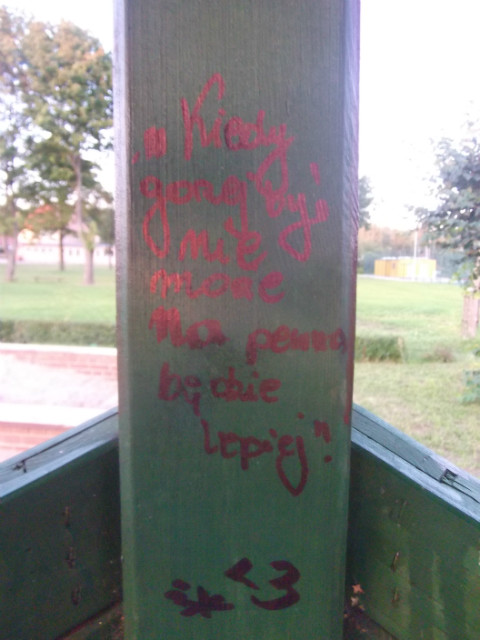 "Kiedy
gorzej być"
nie
może
na pewno
będzie
lepiej".
;* <3